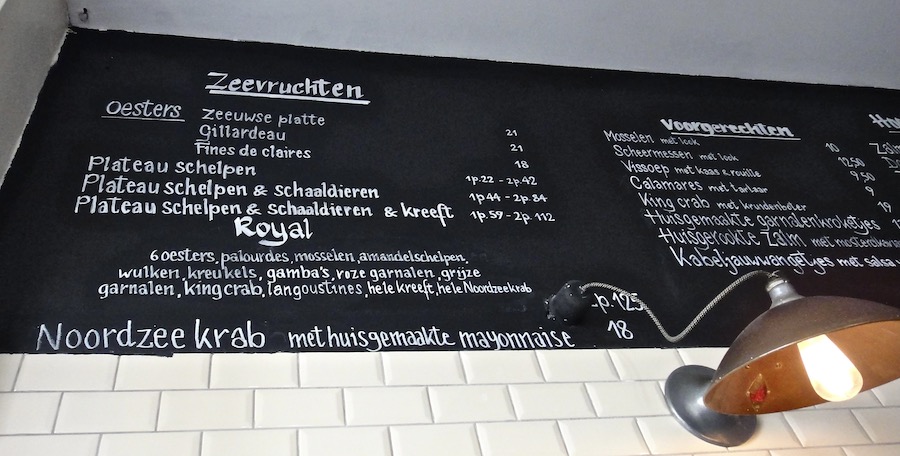 Zeevruchten
Oesters Zeeuwse platte 21
Gillardeau 21
Fines de claires 18
Plateau schelpen 1p.22 - 2p.42
Plateau schelpen & schaaldieren 1p44 - 2p.84
Plateau schelpen & schaaldieren & kreeft 1p.59 - 2p.112
Royal
6 oesters, palourdes, mosselen, amandelschelpen,
wulken, kreukels, gamba's, roze garnalen, grijze
garnalen, king crab, langoustines, hele kreeft, hele Noordzeekrab
.p.125
Noordzee krab met huisgemaakte mayonnaise 18
Voorgerechten
Mosselen met look 10
Scheermessen met look 12,50
Vissoep met kaas & rouille 9,50
Calamares met tartaar 9
King crab met kruidenboter 19
Huisgemaakte garnalenkroketjes
Huisgerookte zalm met
Kabeljauwwangetjes met salsa